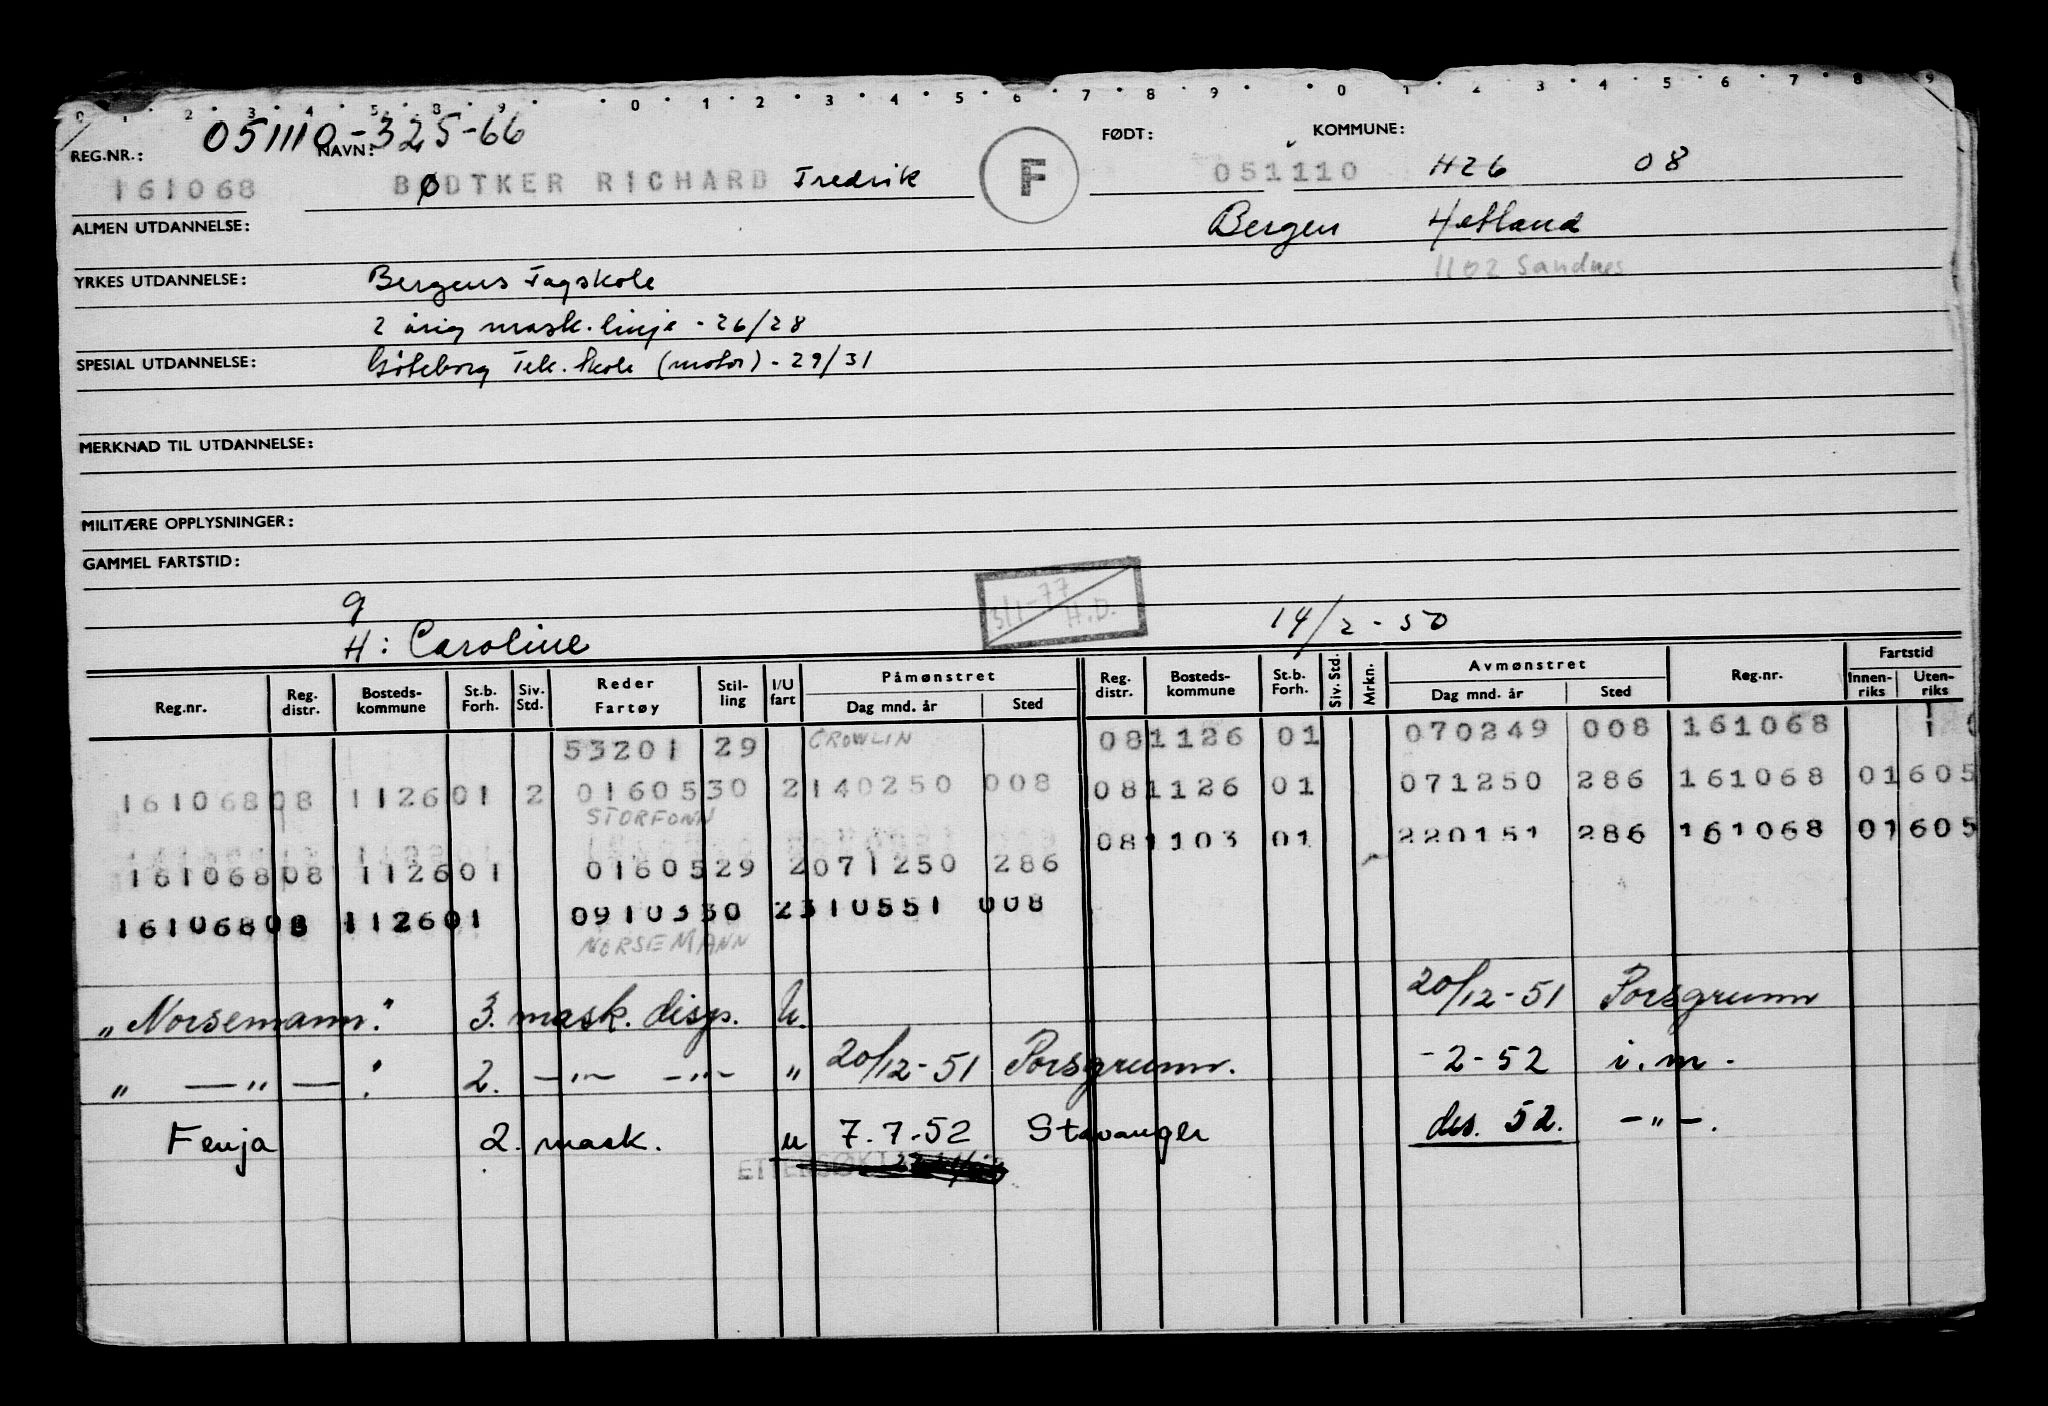 0 1 2 3 4 5 8 9 0 1 2 3 4 5 6 7 8 9 0 1 2 3 4 5 6 7 8 9
REG.NR.: 051110-325-66 NAVN: FØDT: KOMMUNE:
161068 BØDTKER RICHARD Fredrik F 051110 1126 08
ALMEN UTDANNELSE: Bergen Hetland
YRKES UTDANNELSE: Bergens Fagskole 1102 Sandnes
2 årig mask. linje - 26/28
SPESIAL UTDANNELSE: Göteborg Tek. Skole (motor) - 29/31
MERKNAD TIL UTDANNELSE:
MILITÆRE OPPLYSNINGER:
GAMMEL FARTSTID:
9 3/1-77 H.D.
H: Caroline 14/2-50
Reg.nr. Reg. distr. Bosteds-kommune St.b. Forh. Siv. Std. Reder Fartøy Stil-ling I/U fart Påmønstret Dag mnd. år Sted Reg. distr. Bosteds-kommune St.b. Forh. Siv. Std. Mrkn. Avmønstret Dag mnd. år Sted Reg.nr. Fartstid Innen-riks Uten-riks
53201 29 CROWLIN 081126 01 070249 008 161068 1
16106808 112601 2 0160530 2140250 008 081126 01 071250 286 161068 01605
STORFONN
081103 01 220151 286 161068 01605
16106808 112601 0160529 2071250 286
16106808 112601 0910330 2310551 008
NORSEMANN
„Norsemann." 3. mask. disp. U. 20/12-51 Porsgrunn
„ —"— ". 2. —"— —"— „ 20/12-51 Porsgrunn. -2-52 i.m.
Fenja 2. mask. u 7.7.52 Stavanger des. 52. —"—.